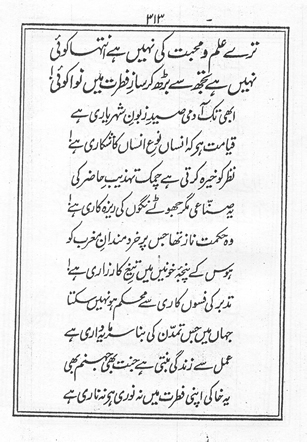 ۳۱۳
ترے علم و محبت کی نہیں ہے انتہا کوئی
نہیں ہے تجھ سے بڑھ کر سازِ فطرت میں نوا کوئی!
ابھی تک آدمی صیدِ زبونِ شہریاری ہے
قیامت ہو کہ انساں نوعِ انساں کا شکاری ہے!
نظر کو خیرہ کرتی ہے چمک تہذیبِ حاضر کی
یہ صنّاعی مگر جھوٹے نگوں کی ریزہ کاری ہے!
وہ حکمت ناز تھا جس پر خردمندانِ مغرب کو
ہوس کے پنجۂ خونیں میں تیغِ کارزاری ہے!
تدبّر کی فسوں کاری سے محکم ہو نہیں سکتا
جہاں میں جس تمدّن کی بنا سرمایہ داری ہے
عمل سے زندگی بنتی ہے جنت بھی جہنم بھی
یہ خاکی اپنی فطرت میں نہ نوری ہے نہ ناری ہے